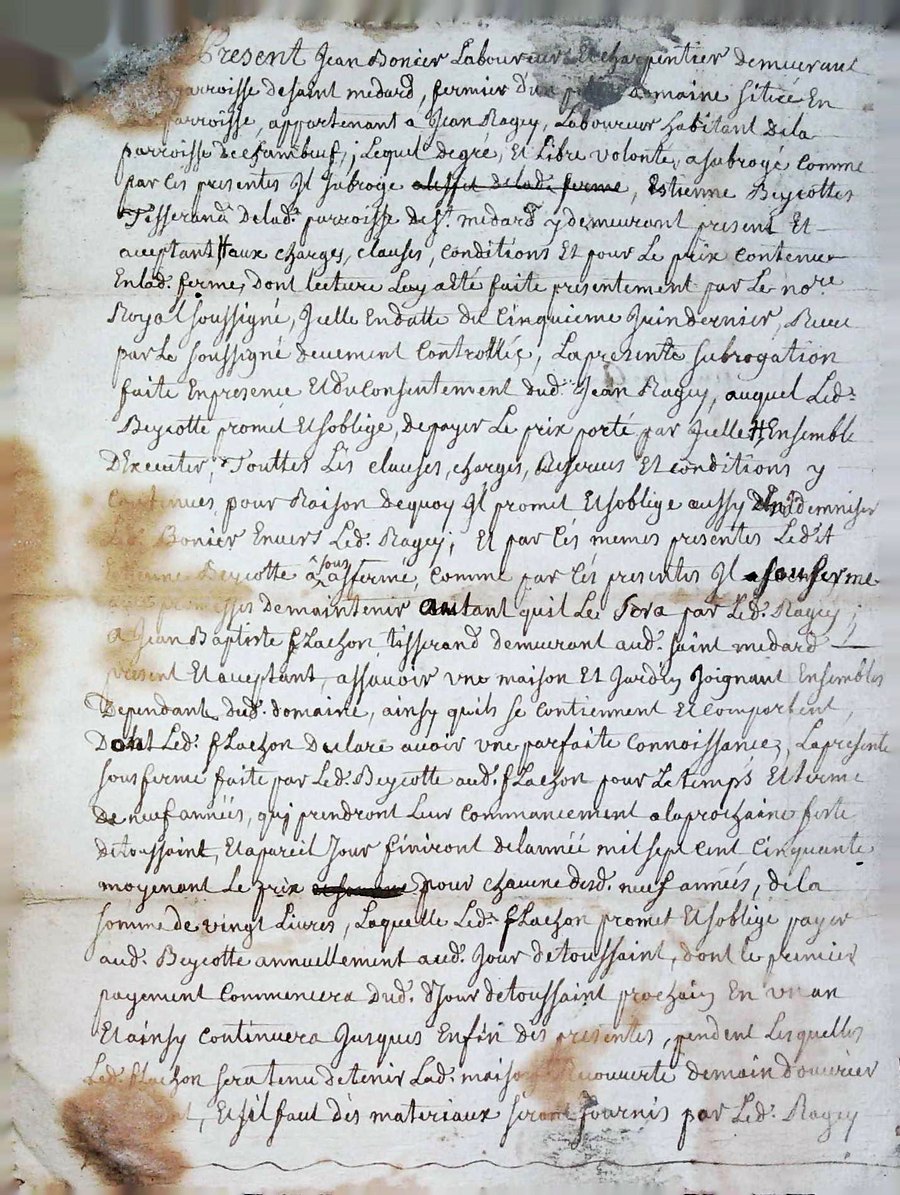 Present Jean Bonier Laboureur Et charpentier demeurant
parroisse de saint medard, fermier d'un domaine sitüé En
parroisse, appartenant a Jean Ragey, Laboureur habitant dela
parroisse ; Lequel degré, Et Libre volonté, a subrogé comme
par ces presentes Jl subroge aleffet delad. ferme, Estienne Beycotte
Tisserand delad. parroisse de St. medard y demeurant present Et
aceptant # aux charges, clauses, conditions Et pour Le prix contenu
Enlad. ferme, dont lecture Luy a été faite presentement par Le nore.
Royal soussigné, Jcelle En datte du Cinquieme Juin dernier, Receu
par Le soussigné deuement Controllée, La presente subrogation
faite En presence Et du Consentement dud. Jean Ragey, auquel Led.
Beycotte promet Et soblige, de payer Le prix porté par Jcelle # Ensemble
D'Executer, Touttes Les clauses, charges, Reserves Et conditions y
Contenues, pour Raison dequoy Jl promet Et soblige aussy d'Indemniser
Led. Bonier Envers Led. Ragey ; Et par Ces memes presentes Ledit
Etienne Beycotte a sous affermé, comme par Ces presentes Jl a sousferme
promesses de maintenir autant quil Le sera par Led. Ragey ;
A Jean Baptiste flachon tisserand demeurant aud. saint medard
present Et aceptant, assavoir une maison Et Jardin Joignant Ensembles
Dependant dud. domaine, ainsy quils se contiennent Et comportent,
Dont Led. flachon declare avoir une parfaite connoissance, La presente
sousferme faite par Led. Beycotte aud. flachon pour Le temps Et terme
de neuf années, qui prendront Leur commancement a la prochaine feste
de toussaint, Et apareil Jour finiront de lannée mil sept cent Cinquante
moyenant Le prix pour chacune desd. neuf années, de la
somme de vingt Livres, Laquelle Led. flachon promet Et soblige payer
aud. Beycotte annuellement aud. Jour de toussaint, dont le premier
payement Commencera dud. Jour de toussaint prochain En un an
Et ainsy continuera Jusques Enfin des presentes, pendent Lesquelles
Led. flachon sera tenu de tenir Lad. maison Recouverte de main d'ouvrier
, Et sil faut des materiaux seront fournis par Led. Ragey